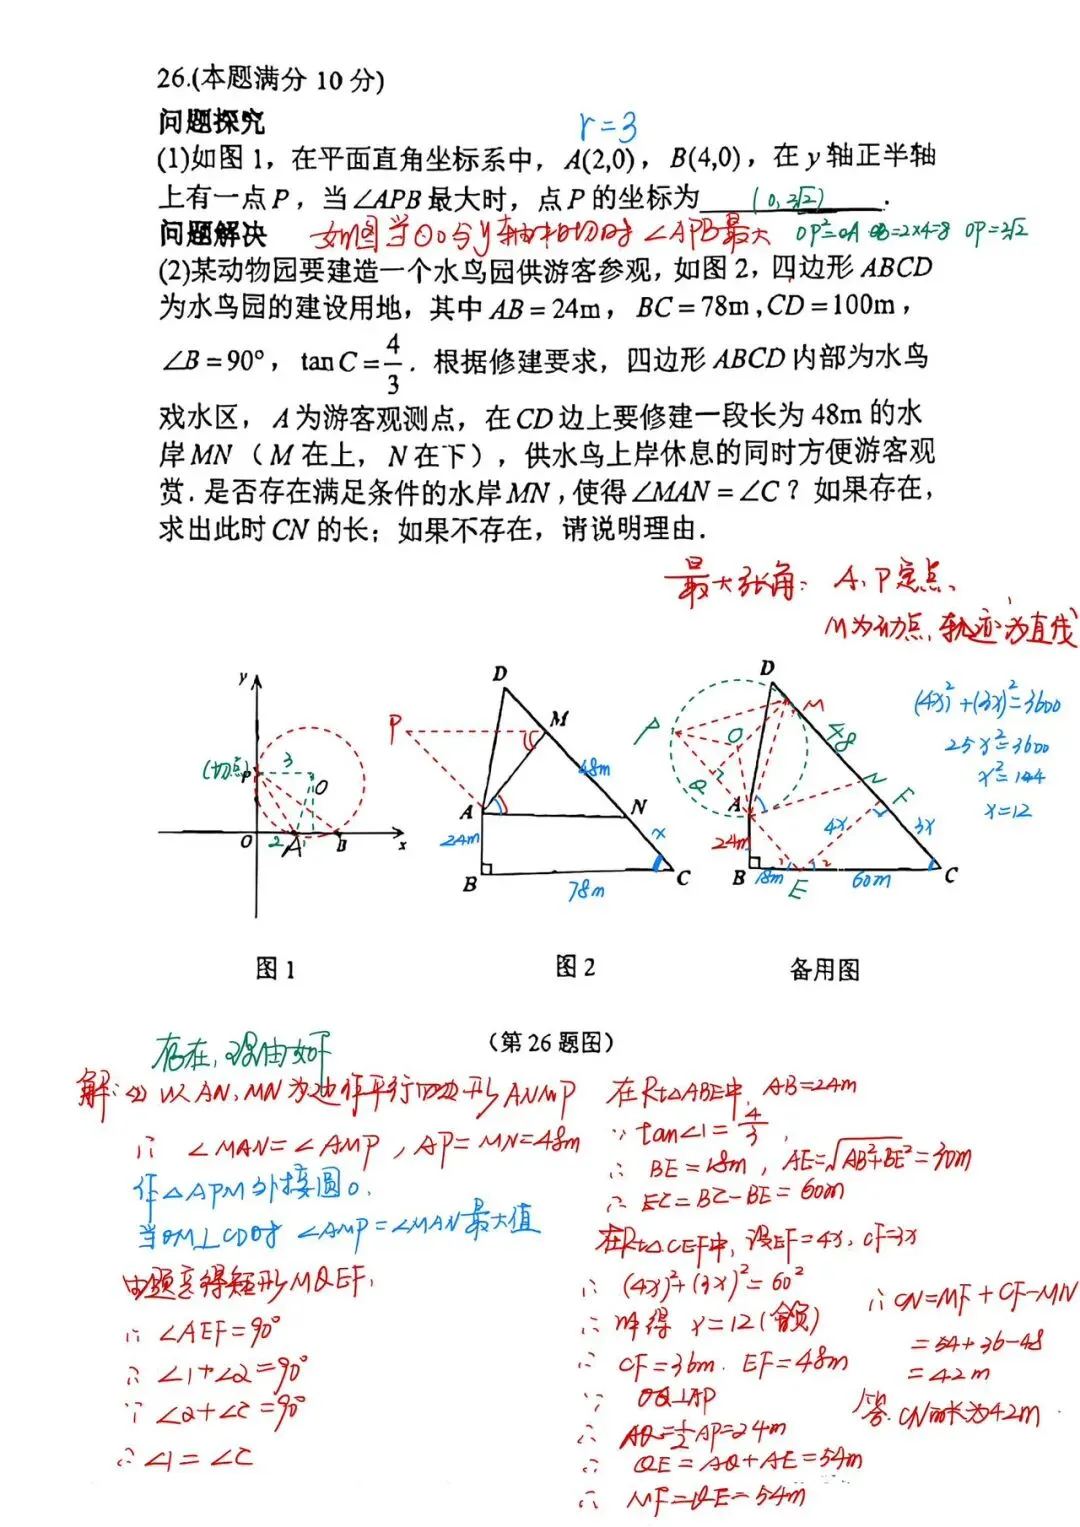 26.(本题满分 10 分)
问题探究
r=3
(1)如图 1，在平面直角坐标系中，A(2,0)，B(4,0)，在 y 轴正半轴
上有一点 P，当∠APB 最大时，点 P 的坐标为 (0,2√2) .
问题解决 如图当⊙O与y轴相切时 ∠APB最大 OP²=OA·OB=2×4=8 OP=2√2
(2)某动物园要建造一个水鸟园供游客参观，如图 2，四边形 ABCD
为水鸟园的建设用地，其中 AB = 24m， BC = 78m ,CD = 100m，
∠B = 90°， tan C = 4/3 . 根据修建要求，四边形 ABCD 内部为水鸟
戏水区， A 为游客观测点，在 CD 边上要修建一段长为 48m 的水
岸 MN （ M 在上， N 在下），供水鸟上岸休息的同时方便游客观
赏. 是否存在满足条件的水岸 MN , 使得 ∠MAN = ∠C？如果存在，
求出此时 CN 的长；如果不存在，请说明理由.
最大张角：A、P定点、
M为动点，轨迹为直线
y
(切点)
P
3
O
O
2
A
B
x
图 1
D
P
M
48m
A
N
24m
x
B
C
78m
图 2
D
M
P
O
48
Q
N
A
F
4x
3x
24m
1
2
B
18m
E
60m
C
备用图
(4x)²+(3x)²=3600
25x²=3600
x²=144
x=12
（第 26 题图）
存在，理由如下
解：(2) 以AN、MN为边作平行四边形ANMP
∴ ∠MAN=∠AMP，AP=MN=48m
作△APM外接圆O.
当OM⊥CD时 ∠AMP=∠MAN最大值
由题意得矩形MQEF，
∴ ∠AEF=90°
∴ ∠1+∠2=90°
∵ ∠2+∠C=90°
∴ ∠1=∠C
在Rt△ABE中，AB=24m
∵ tan∠1=4/3，
∴ BE=18m，AE=√AB²+BE²=30m
∴ EC=BC-BE=60m
在Rt△CEF中，设EF=4x，CF=3x
∴ (4x)²+(3x)²=60²
∴ 解得 x=12(舍负)
∴ CF=36m. EF=48m
∵ OQ⊥AP
∴ AQ=1/2AP=24m
∴ QE=AQ+AE=54m
∴ MF=QE=54m
∴ CN=MF+CF-MN
=54+36-48
=42m
答：CN的长为42m.